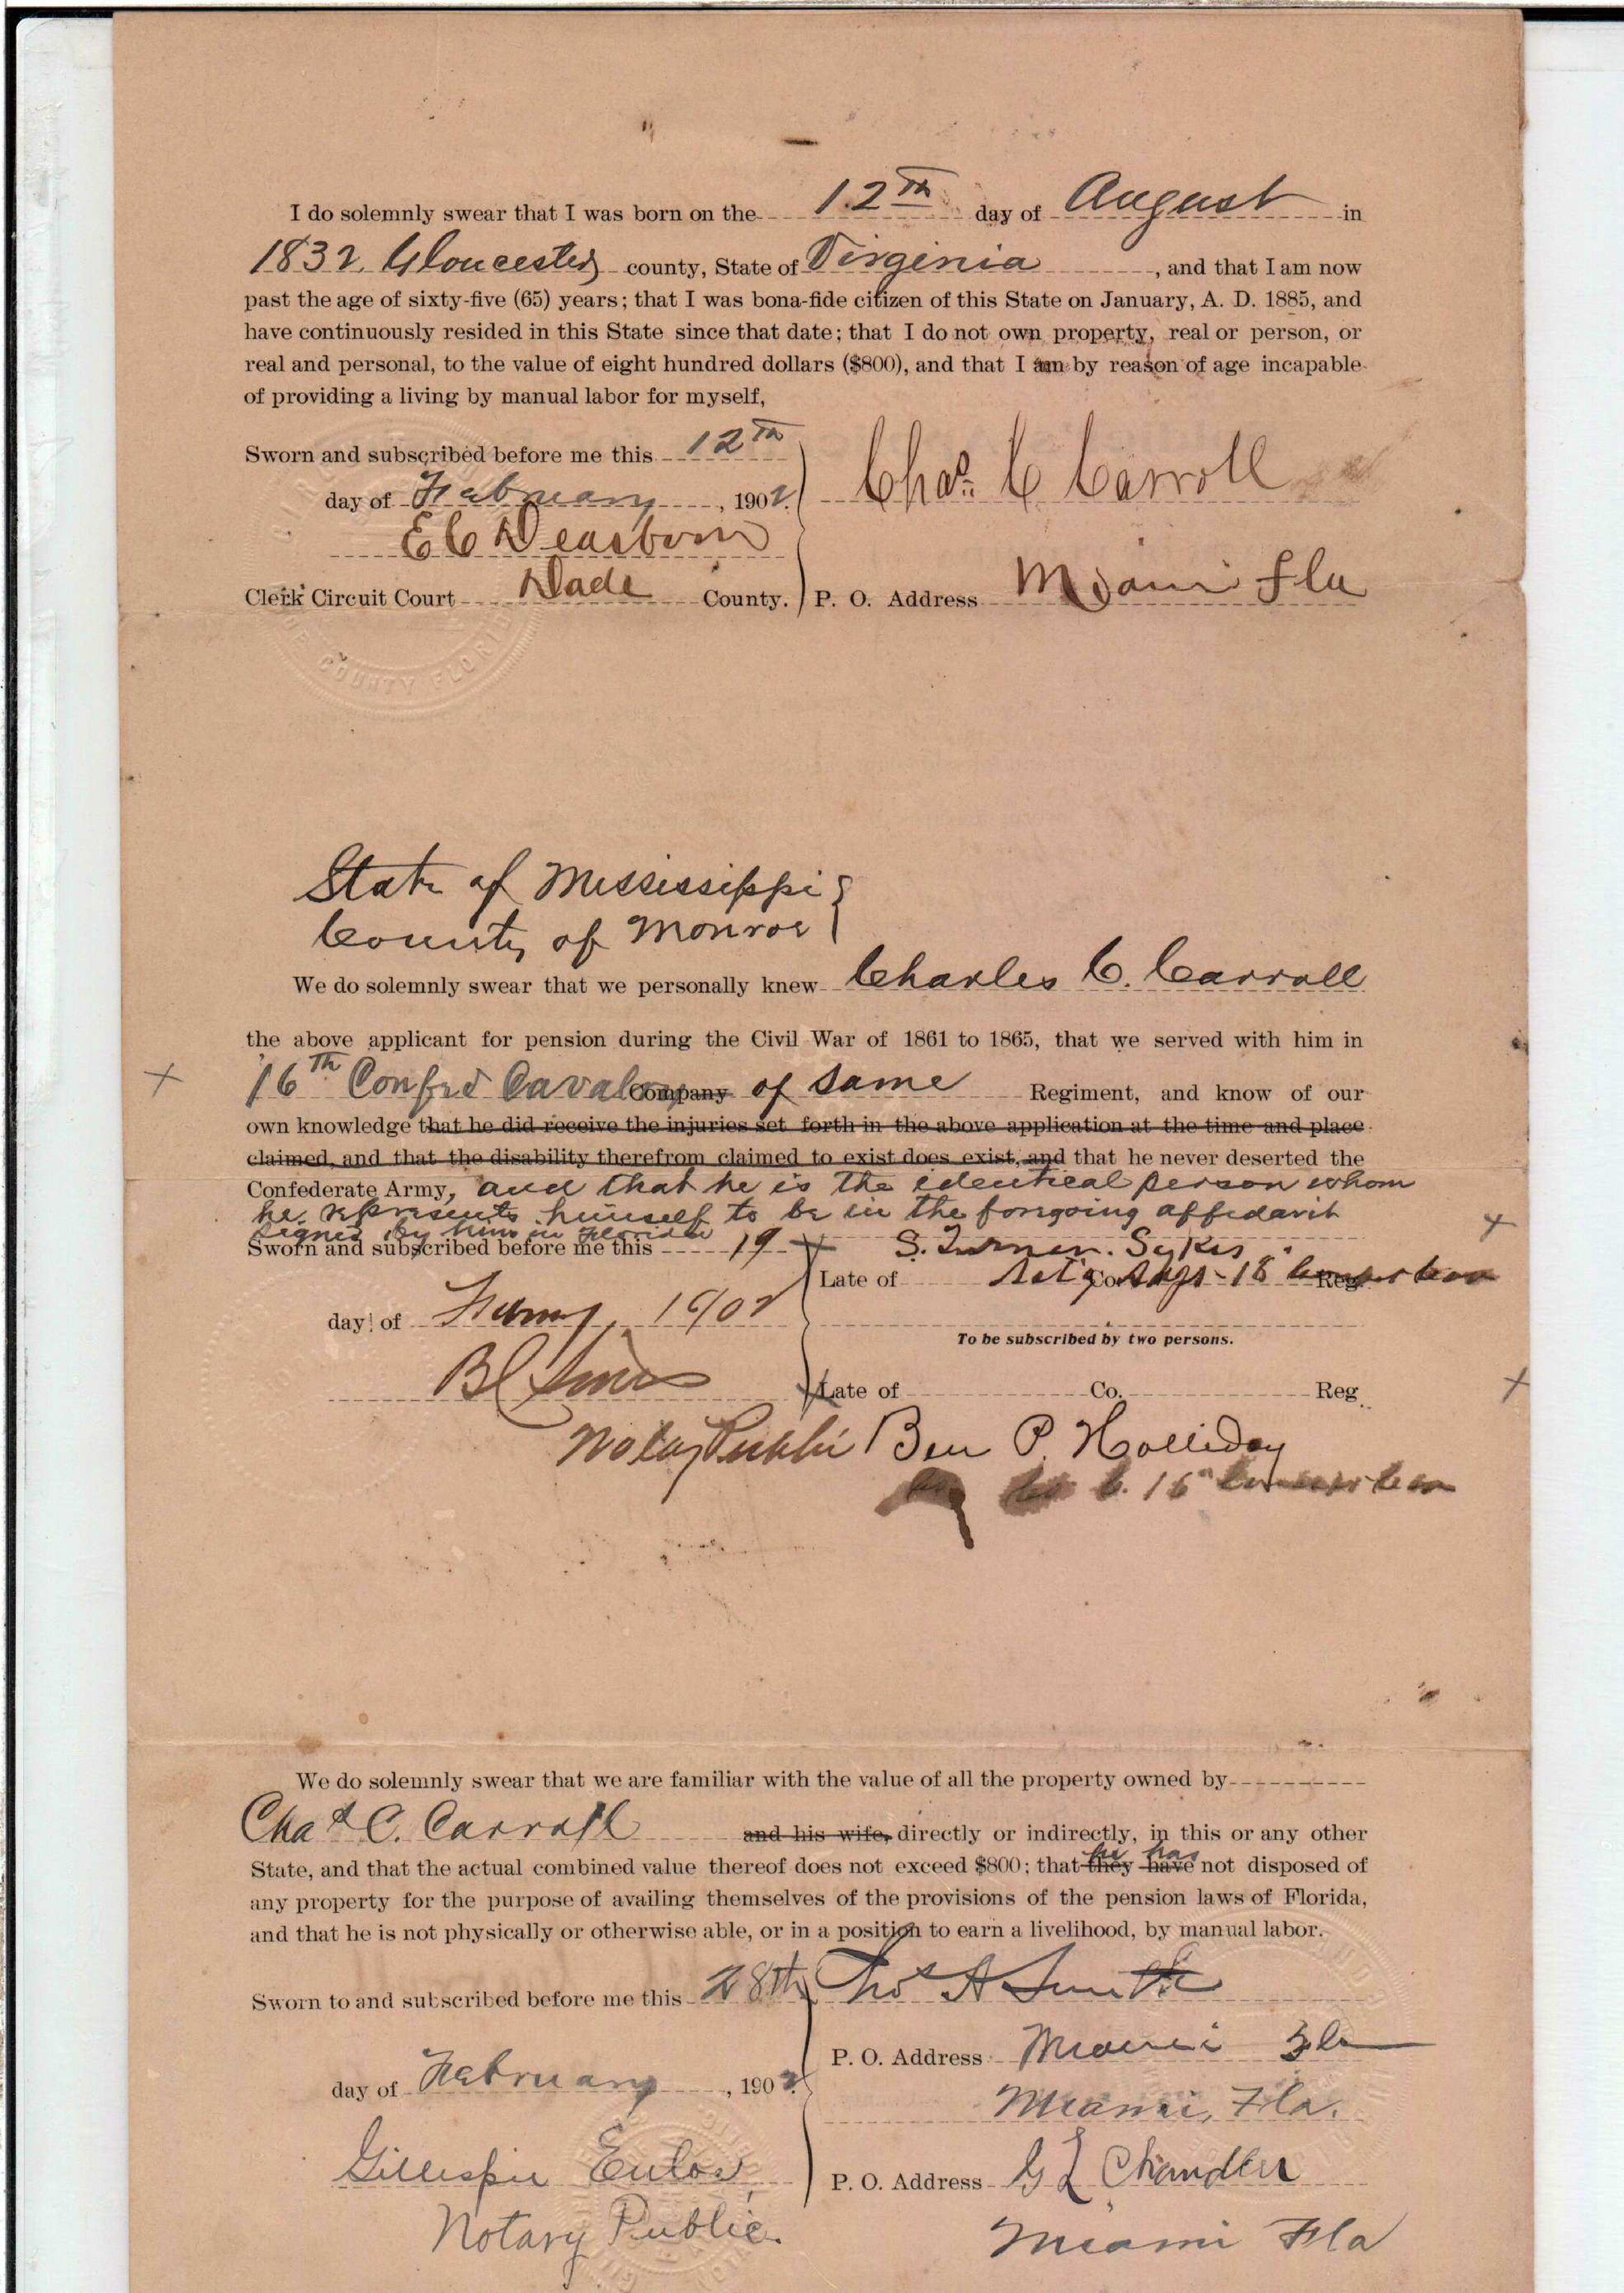 I do solemnly swear that I was born on the 12th day of August in
1832, Gloucester county, State of Virginia, and that I am now
past the age of sixty-five (65) years; that I was bona-fide citizen of this State on January, A. D. 1885, and
have continuously resided in this State since that date; that I do not own property, real or person, or
real and personal, to the value of eight hundred dollars ($800), and that I am by reason of age incapable
of providing a living by manual labor for myself,
Sworn and subscribed before me this 12th
day of February, 1902.
Chas. C Carroll
E C Dearborn
Clerk Circuit Court Dade County.
P. O. Address Miami Fla
COUNTY FLORIDA
State of Mississippi
County of Monroe
We do solemnly swear that we personally knew Charles C. Carroll
the above applicant for pension during the Civil War of 1861 to 1865, that we served with him in
16th Confed Cavalry Company of same Regiment, and know of our
own knowledge that he did receive the injuries set forth in the above application at the time and place
claimed, and that the disability therefrom claimed to exist does exist, and that he never deserted the
Confederate Army, and that he is the identical person whom
he represents himself to be in the forgoing affidavit
signed by him in Florida
Sworn and subscribed before me this 19
S. Turner. Sykes
Late of Co. Reg.
day of 1902
To be subscribed by two persons.
Late of Co. Reg.
Notary Public
Ben P. Holliday
Co C. 16"
We do solemnly swear that we are familiar with the value of all the property owned by
Chas C. Carroll and his wife, directly or indirectly, in this or any other
State, and that the actual combined value thereof does not exceed $800; that they have he has not disposed of
any property for the purpose of availing themselves of the provisions of the pension laws of Florida,
and that he is not physically or otherwise able, or in a position to earn a livelihood, by manual labor.
Sworn to and subscribed before me this 28th
Thos A Smith
P. O. Address Miami Fla
day of February, 1902.
Miami, Fla.
Gillespie Enloe,
P. O. Address G L Chandler
Notary Public.
Miami Fla